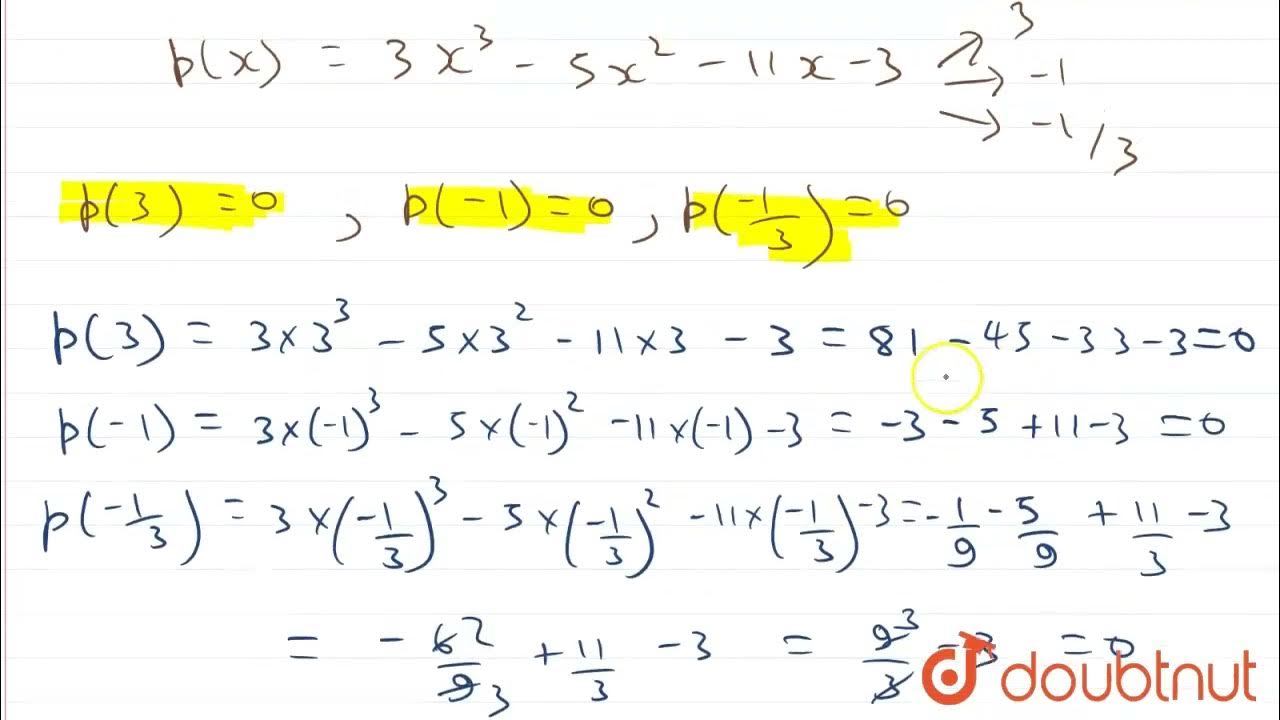 p(x) = 3x³ - 5x² - 11x - 3 → 3
→ -1
→ -1/3
p(3) = 0 , p(-1) = 0 , p(-1/3) = 0
p(3) = 3×3³ - 5×3² - 11×3 - 3 = 81 - 45 - 33 - 3 = 0
p(-1) = 3×(-1)³ - 5×(-1)² - 11×(-1) - 3 = -3 - 5 + 11 - 3 = 0
p(-1/3) = 3×(-1/3)³ - 5×(-1/3)² - 11×(-1/3) - 3 = -1/9 - 5/9 + 11/3 - 3
= - 6̶ 2/9̶ 3 + 11/3 - 3 = 9̶ 3/3̶ - 3 = 0
doubtnut